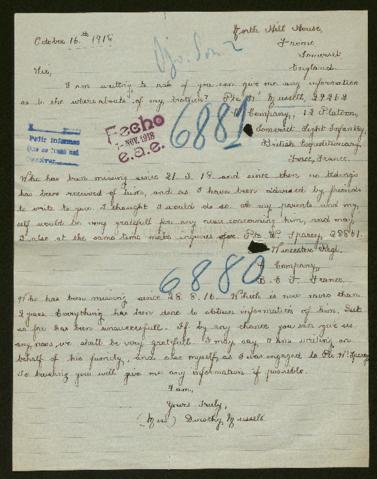 October 16th 1918
North Hill House,
Frome,
Somerset
England.
Sirs,
I am writing to ask if you can give me any information
as to the whereabouts of my brother? Pte W. Mussell, 29262
Company, 13 Platoon,
Somerset Light Infantry,
British Expeditionary
Force, France.
6881
Fecho
7-NOV. 1918
e.a.e.
Who has been missing since 21.3.18 and since then no tidings
has been received of him, and as I have been advised by friends
to write to you. I thought I would do so as my parents and my-
self would be very grateful for any news concerning him, and may
I also at the same time make inquires for Pte W. Sparey,
Worcester Regt.
Company,
B.E.F. France.
6880
Who has been missing since 28.8.16. Which is now more than
2 years. Everything has been done to obtain information of him, but
so far has been unsuccessfull. If by any chance you can give us
any news, we shall be very gratefull. I may say, I am writing on
behalf of his family, and also myself, as I was engaged to Pte W. Sparey
So trusting you will give me any information if possible.
I am,
Yours Truly,
(Miss) Dorothy Mussell